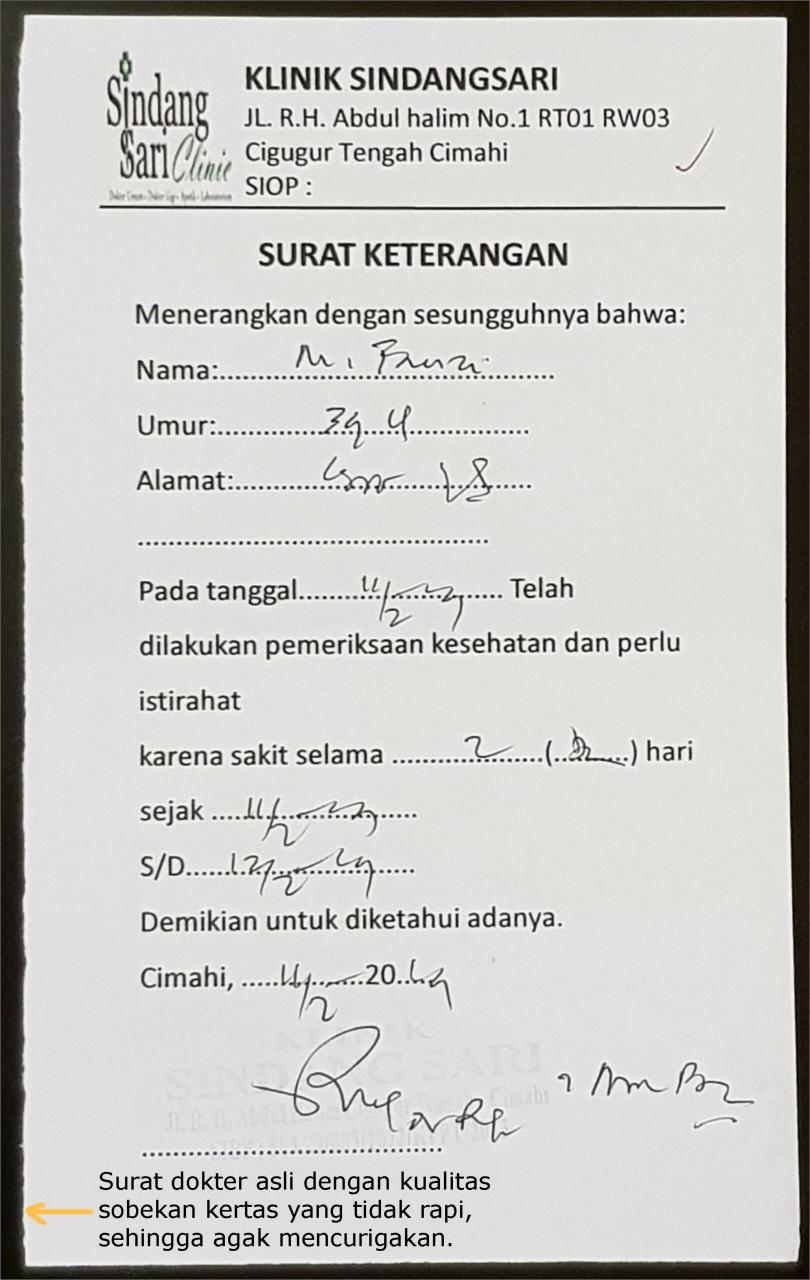 Sindang
Sari Clinic
KLINIK SINDANGSARI
JL. R.H. Abdul halim No.1 RT01 RW03
Cigugur Tengah Cimahi
SIOP :
SURAT KETERANGAN
Menerangkan dengan sesungguhnya bahwa:
Nama:.....M. Fauzi.....
Umur:.....
Alamat:.....
Pada tanggal.....11/2..... Telah
dilakukan pemeriksaan kesehatan dan perlu
istirahat
karena sakit selama .....2.....(.....) hari
sejak .....11/2.....
S/D.....12/2.....19.....
Demikian untuk diketahui adanya.
Cimahi, .....11/2.....20..19
KLINIK
SINDANG SARI
Surat dokter asli dengan kualitas
sobekan kertas yang tidak rapi,
sehingga agak mencurigakan.